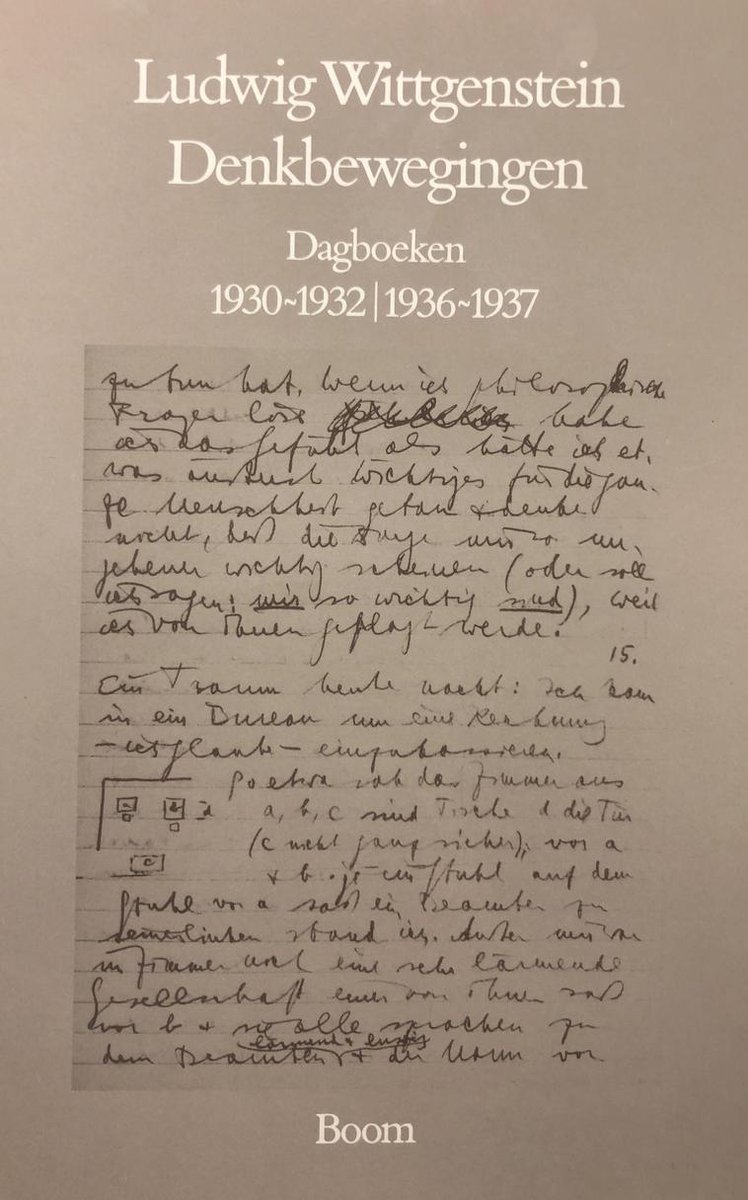 Ludwig Wittgenstein
Denkbewegingen
Dagboeken
1930~1932|1936~1937
zu tun hat. Wenn ich philosophische
Fragen löse habe
ich das Gefühl als hätte ich et-
was äußerst wichtiges für die gan-
ze Menschheit getan & denke
nicht, daß die Dinge mir so un-
geheuer wichtig scheinen (oder soll
ich sagen: mir so wichtig sind), weil
ich von ihnen geplagt werde.
15.
Ein Traum heute nacht: Ich kam
in ein Bureau um eine Rechnung
– ich glaube – einzukassieren.
So etwa sah das Zimmer aus
a b d a, b, c sind Tische d die Tür
(c nicht ganz sicher); vor a
c & b je ein Stuhl auf dem
Stuhl vor a saß ein Beamter zu
seiner linken stand ich. Außer mir war
im Zimmer noch eine sehr lärmende
Gesellschaft einer von ihnen saß
vor b & alle sprachen zu
lärmend & lustig
dem Beamten & der Mann vor
Boom